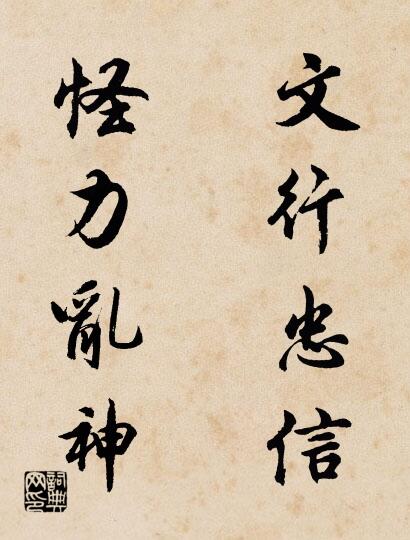 文行忠信
怪力亂神
詞典網印